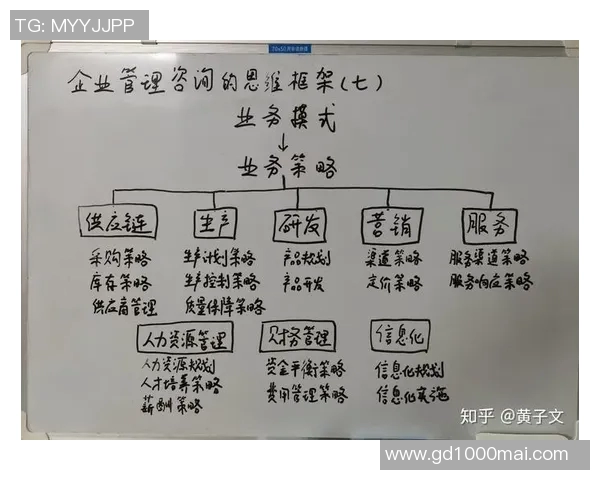 TG: MYYJJPP
企业管理咨询的思维框架(七)
业务模式
↓
业务策略
供应链 生产 研发 营销 服务
采购策略 生产计划策略 产品规划 渠道策略 服务渠道策略
库存策略 生产控制策略 产品开发 定价策略 服务响应策略
供应商管理 质量保障策略
人力资源管理 财务管理 信息化
人力资源规划 资金平衡策略 信息化规划
人才培养策略 费用管理策略 信息化实施
薪酬策略
知乎 @黄子文
www.gd1000mai.com